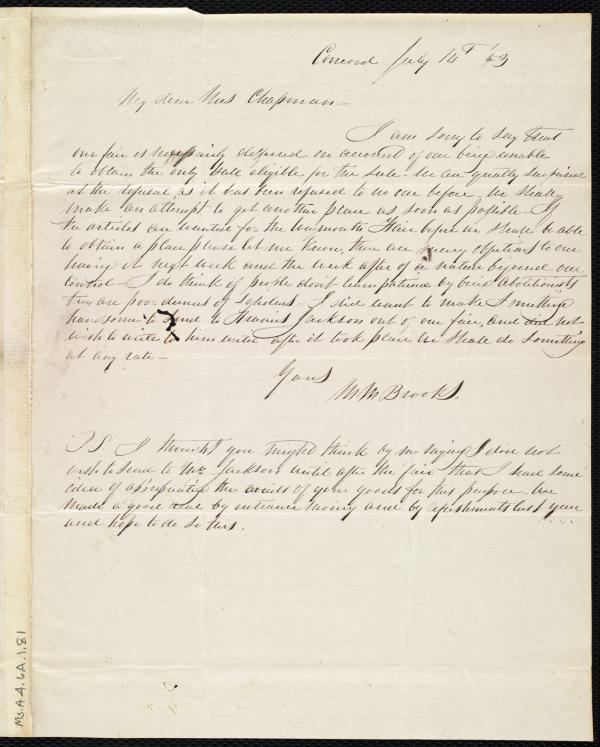 Concord July 14th 53
My dear Mrs Chapman—
I am sorry to say that
our fair is necessarily deferred on account of our being unable
to obtain the only Hall eligible for the sale. We are equally surprised
at the refusal, as it has been refused to no one before. We shall
make an attempt to get another place as soon as possible. If
the articles are wanted for the Weymouth Fair before we shall be able
to obtain a place please let me know, there are many objections to our
having it next week and the week after of a nature beyond our
control— I do think if people dont learn patience by being abolitionists
they are poor dunces of scholars— I did want to make something
handsome to send to Francis Jackson out of our fair, and did not
wish to write to him until after it took place We shall do something
at any rate—
Yours
M M Brooks.
P S I thought you might think by my saying I did not
wish to send to Mr Jackson until after the fair that I had some
idea of appropriating the avails of your goods for this purpose. We
made a good deal by entrance money and by refreshments last year
and hope to do so this.
Ms.A.4.6A.1.81